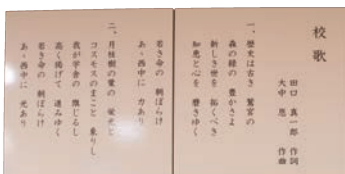 校歌
田口真一郎 作詞
大中恩 作曲
一、歴史は古き 鷲宮の
森の緑の 豊かさよ
新しき世を 拓くべき
知恵と心を 磨きゆく
若き命の 朝ぼらけ
あゝ西中に 力あり
二、月桂樹の葉の 栄光と
コスモスのまこと 象りし
我が学舎の 旗じるし
高く掲げて 進みゆく
若き命の 朝ぼらけ
あゝ西中に 光あり